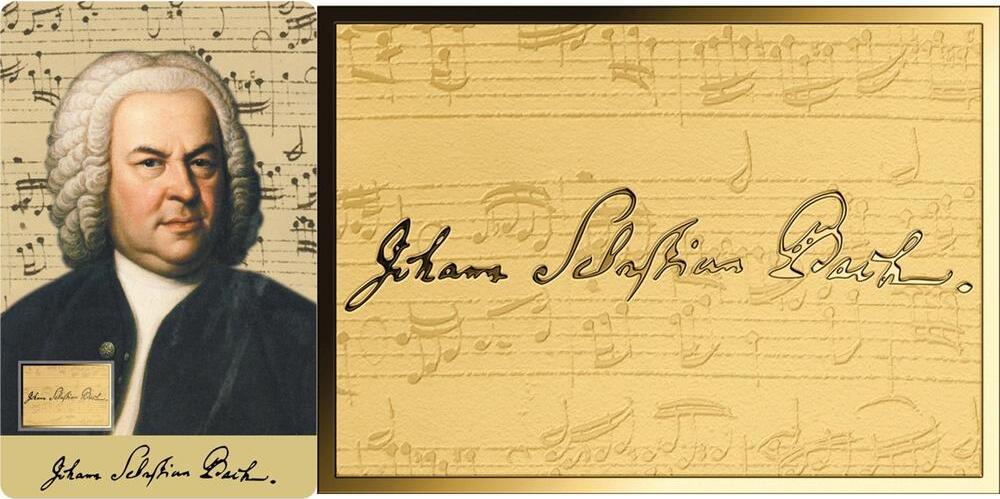 Johann Sebastian Bach.
Johann Sebastian Bach.
Johann Sebastian Bach.